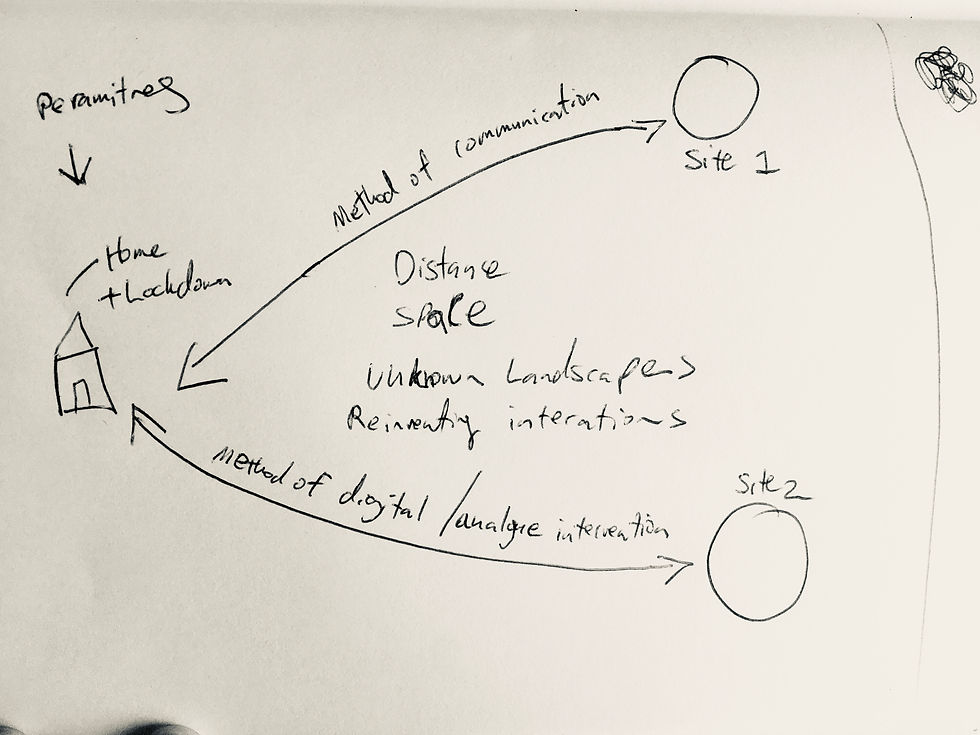 Peramitres
Home
+Lockdown
Method of communication
Site 1
Distance
space
Unknown Landscapes
Reinventing interations
Method of digital / analgre intervention
Site 2